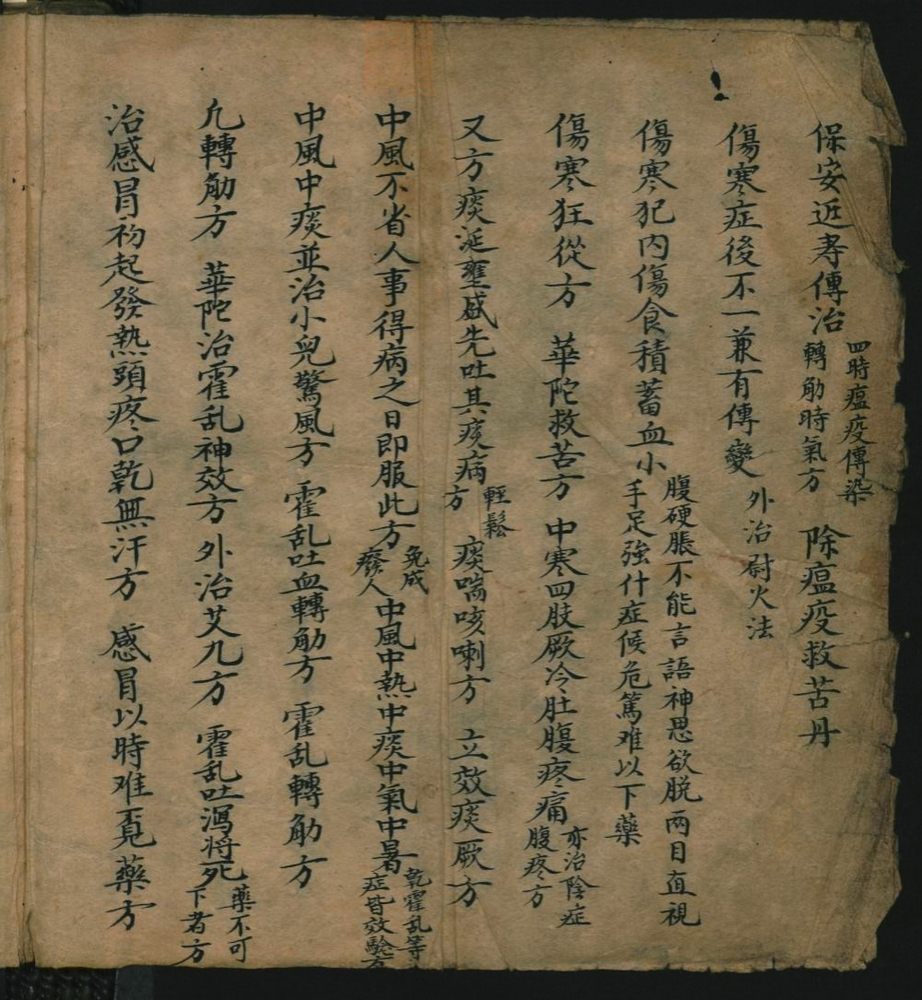 保安延寿傳治四時瘟疫傳染轉觔時氣方　除瘟疫救苦丹
傷寒症後不一兼有傳變　外治尉火法
傷寒犯内傷食積蓄血小腹硬脹不能言語神思欲脱兩目直視手足強什症候危篤难以下藥
傷寒狂從方　華陀救苦方　中寒四肢厥冷肚腹疼痛亦治陰症腹疼方
又方痰涎壅盛先吐其痰病輕鬆方　痰喘咳喇方　立效痰厥方
中風不省人事得病之日即服此方免成癈人　中風中熱中痰中氣中暑乾霍乱等症皆效驗
中風中痰並治小兒驚風方　霍乱吐血轉觔方　霍乱轉觔方
凢轉觔方　華陀治霍乱神效方　外治艾九方　霍乱吐瀉將死藥不可下者方
治感冒初起發熱頭疼口乾無汗方　感冒以時难覔藥方